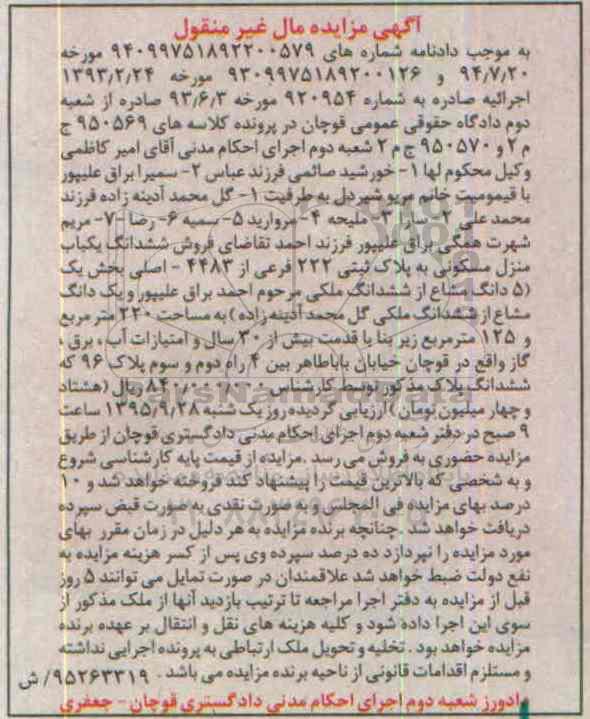 آگهی مزایده مال غیر منقول
به موجب دادنامه شماره های ۹۴۰۹۹۷۵۱۸۹۲۲۰۰۵۷۹ مورخه
۹۴٫۷٫۲۰ و ۹۳۰۹۹۷۵۱۸۹۲۰۰۱۲۶ مورخه ۱۳۹۳٫۲٫۲۴
اجرائیه صادره به شماره ۹۲۰۹۵۴ مورخه ۹۳٫۶٫۳ صادره از شعبه
دوم دادگاه حقوقی عمومی قوچان در پرونده کلاسه های ۹۵۰۵۶۹ ج
م ۲ و ۹۵۰۵۷۰ ج م ۲ شعبه دوم اجرای احکام مدنی آقای امیر کاظمی
وکیل محکوم لها ۱- خورشید صائمی فرزند عباس ۲- سمیرا براق علیپور
با قیمومیت خانم مریو شیردل به طرفیت ۱- گل محمد آدینه زاده فرزند
محمد علی ۲- سارا ۳- ملیحه ۴- مروارید ۵- سمیه ۶- رضا ۷- مریم
شهرت همگی براق علیپور فرزند احمد تقاضای فروش ششدانگ یکباب
منزل مسکونی به پلاک ثبتی ۲۲۲ فرعی از ۴۴۸۳ - اصلی بخش یک
(۵ دانگ مشاع از ششدانگ ملکی مرحوم احمد براق علیپور و یک دانگ
مشاع از ششدانگ ملکی گل محمد آدینه زاده) به مساحت ۲۲۰ متر مربع
و ۱۲۵ مترمربع زیر بنا با قدمت بیش از ۳۰ سال و امتیازات آب ، برق ،
گاز واقع در قوچان خیابان باباطاهر بین ۴ راه دوم و سوم پلاک ۹۶ که
ششدانگ پلاک مذکور توسط کارشناس ۸۴۰٫۰۰۰٫۰۰۰ ریال (هشتاد
و چهار میلیون تومان) ارزیابی گردیده روز یک شنبه ۱۳۹۵٫۹٫۲۸ ساعت
۹ صبح در دفتر شعبه دوم اجرای احکام مدنی دادگستری قوچان از طریق
مزایده حضوری به فروش می رسد .مزایده از قیمت پایه کارشناسی شروع
و به شخصی که بالاترین قیمت را پیشنهاد کند فروخته خواهد شد و ۱۰
درصد بهای مزایده فی المجلس و به صورت نقدی به صورت قبض سپرده
دریافت خواهد شد . چنانچه برنده مزایده به هر دلیل در زمان مقرر بهای
مورد مزایده را نپردازد ده درصد سپرده وی پس از کسر هزینه مزایده به
نفع دولت ضبط خواهد شد علاقمندان در صورت تمایل می توانند ۵ روز
قبل از مزایده به دفتر اجرا مراجعه تا ترتیب بازدید آنها از ملک مذکور از
سوی این اجرا داده شود و کلیه هزینه های نقل و انتقال بر عهده برنده
مزایده خواهد بود . تخلیه و تحویل ملک ارتباطی به پرونده اجرایی نداشته
و مستلزم اقدامات قانونی از ناحیه برنده مزایده می باشد . ۹۵۲۶۳۳۱۹/ ش
دادورز شعبه دوم اجرای احکام مدنی دادگستری قوچان - جعفری
ParsNamadData